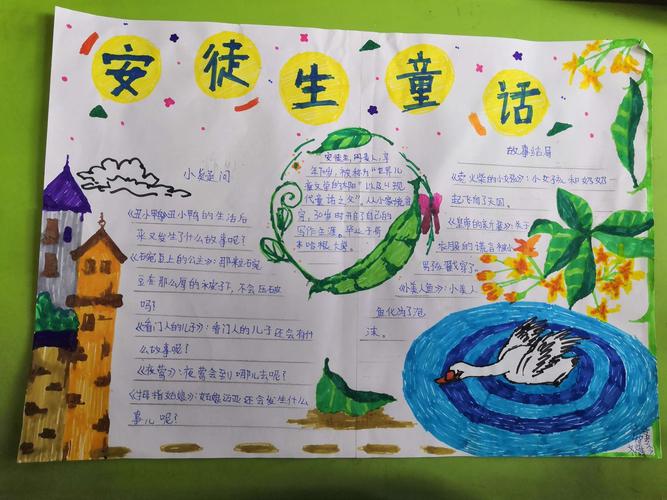 安徒生童话
小疑问
《丑小鸭》丑小鸭的生活后
来又发生了什么故事呢?
《豌豆上的公主》:那粒豌
豆在那么厚的被子下,不会压破
吗?
《看门人的儿子》:看门人的儿子还会有什
么故事呢?
《夜莺》:夜莺会到哪儿去呢?
《拇指姑娘》:姑娘 还会发生什么
事儿呢?
安徒生,丹麦人,享
年70岁,被称为"世界儿
童文学的太阳"以及"现
代童话之父"。从小家境贫
穷,30岁时开启了自己的
写作生涯。毕业于哥
本哈根大学。
故事结局
《卖火柴的小女孩》:小女孩和奶奶一
起飞向了天国。
《皇帝的新装》:关于
衣服的谎言被小
男孩戳穿了。
《小美人鱼》:小美人
鱼化为了泡
沫。